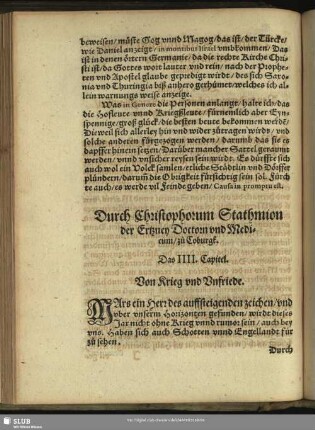 beweisen/ müste Gog vnnd Magog/ das ist/ der Türcke/
wie Daniel anzeigt/ in montibus Israel vmbkommen/ Das
ist in denen örtern Germaniæ/ da die rechte Kirche Chri-
sti ist/ da Gottes wort lauter vnd rein/ nach der Prophe-
ten vnd Apostel glaube geprediget wirdt/ des sich Saxo-
nia vnd Thuringia biß anhero gerhümet/ welches ich al-
lein warnungs weise anzeige.
Was in Genere die Personen anlangt/ halte ich/ das
die Hofleute vnnd Kriegßleute/ fürnemlich aber Eyn-
spennige/ groß glück/ die besten beute bekommen werdẽ/
Die weil sich allerley hin vnd wider zutragen würdt/ vnd
solche anderen fürgezogen werden/ darumb das sie es
dapffer hinein setzen/ Darüber mancher Sattel geraumt
werden/ vnnd vnsicher reysen sein wirdt. Es dürffte sich
auch wol ein Volck samlen/ etliche Städtlin vnd Dörffer
plündern/ darumb die Obrigkeit fürsichtig sein sol. Fürch
te auch/ es werde vil Feinde geben/ Causa in promptu est.
Durch Christophorum Stathmion
der Ertzney Doctorn vnd Medi-
cum/ zu Coburgk.
Das IIII. Capitel.
Von Krieg vnd Vnfriede.
MArs ein Herr des auffsteigenden zeichen/ vnd
vber vnserm Horizonten gefunden/ wirdt dieses
Jar nicht ohne Krieg vnnd rumor sein/ auch bey
vns. Haben sich auch Schotten vnnd Engellandt für
zu sehen.
Durch
SLUB